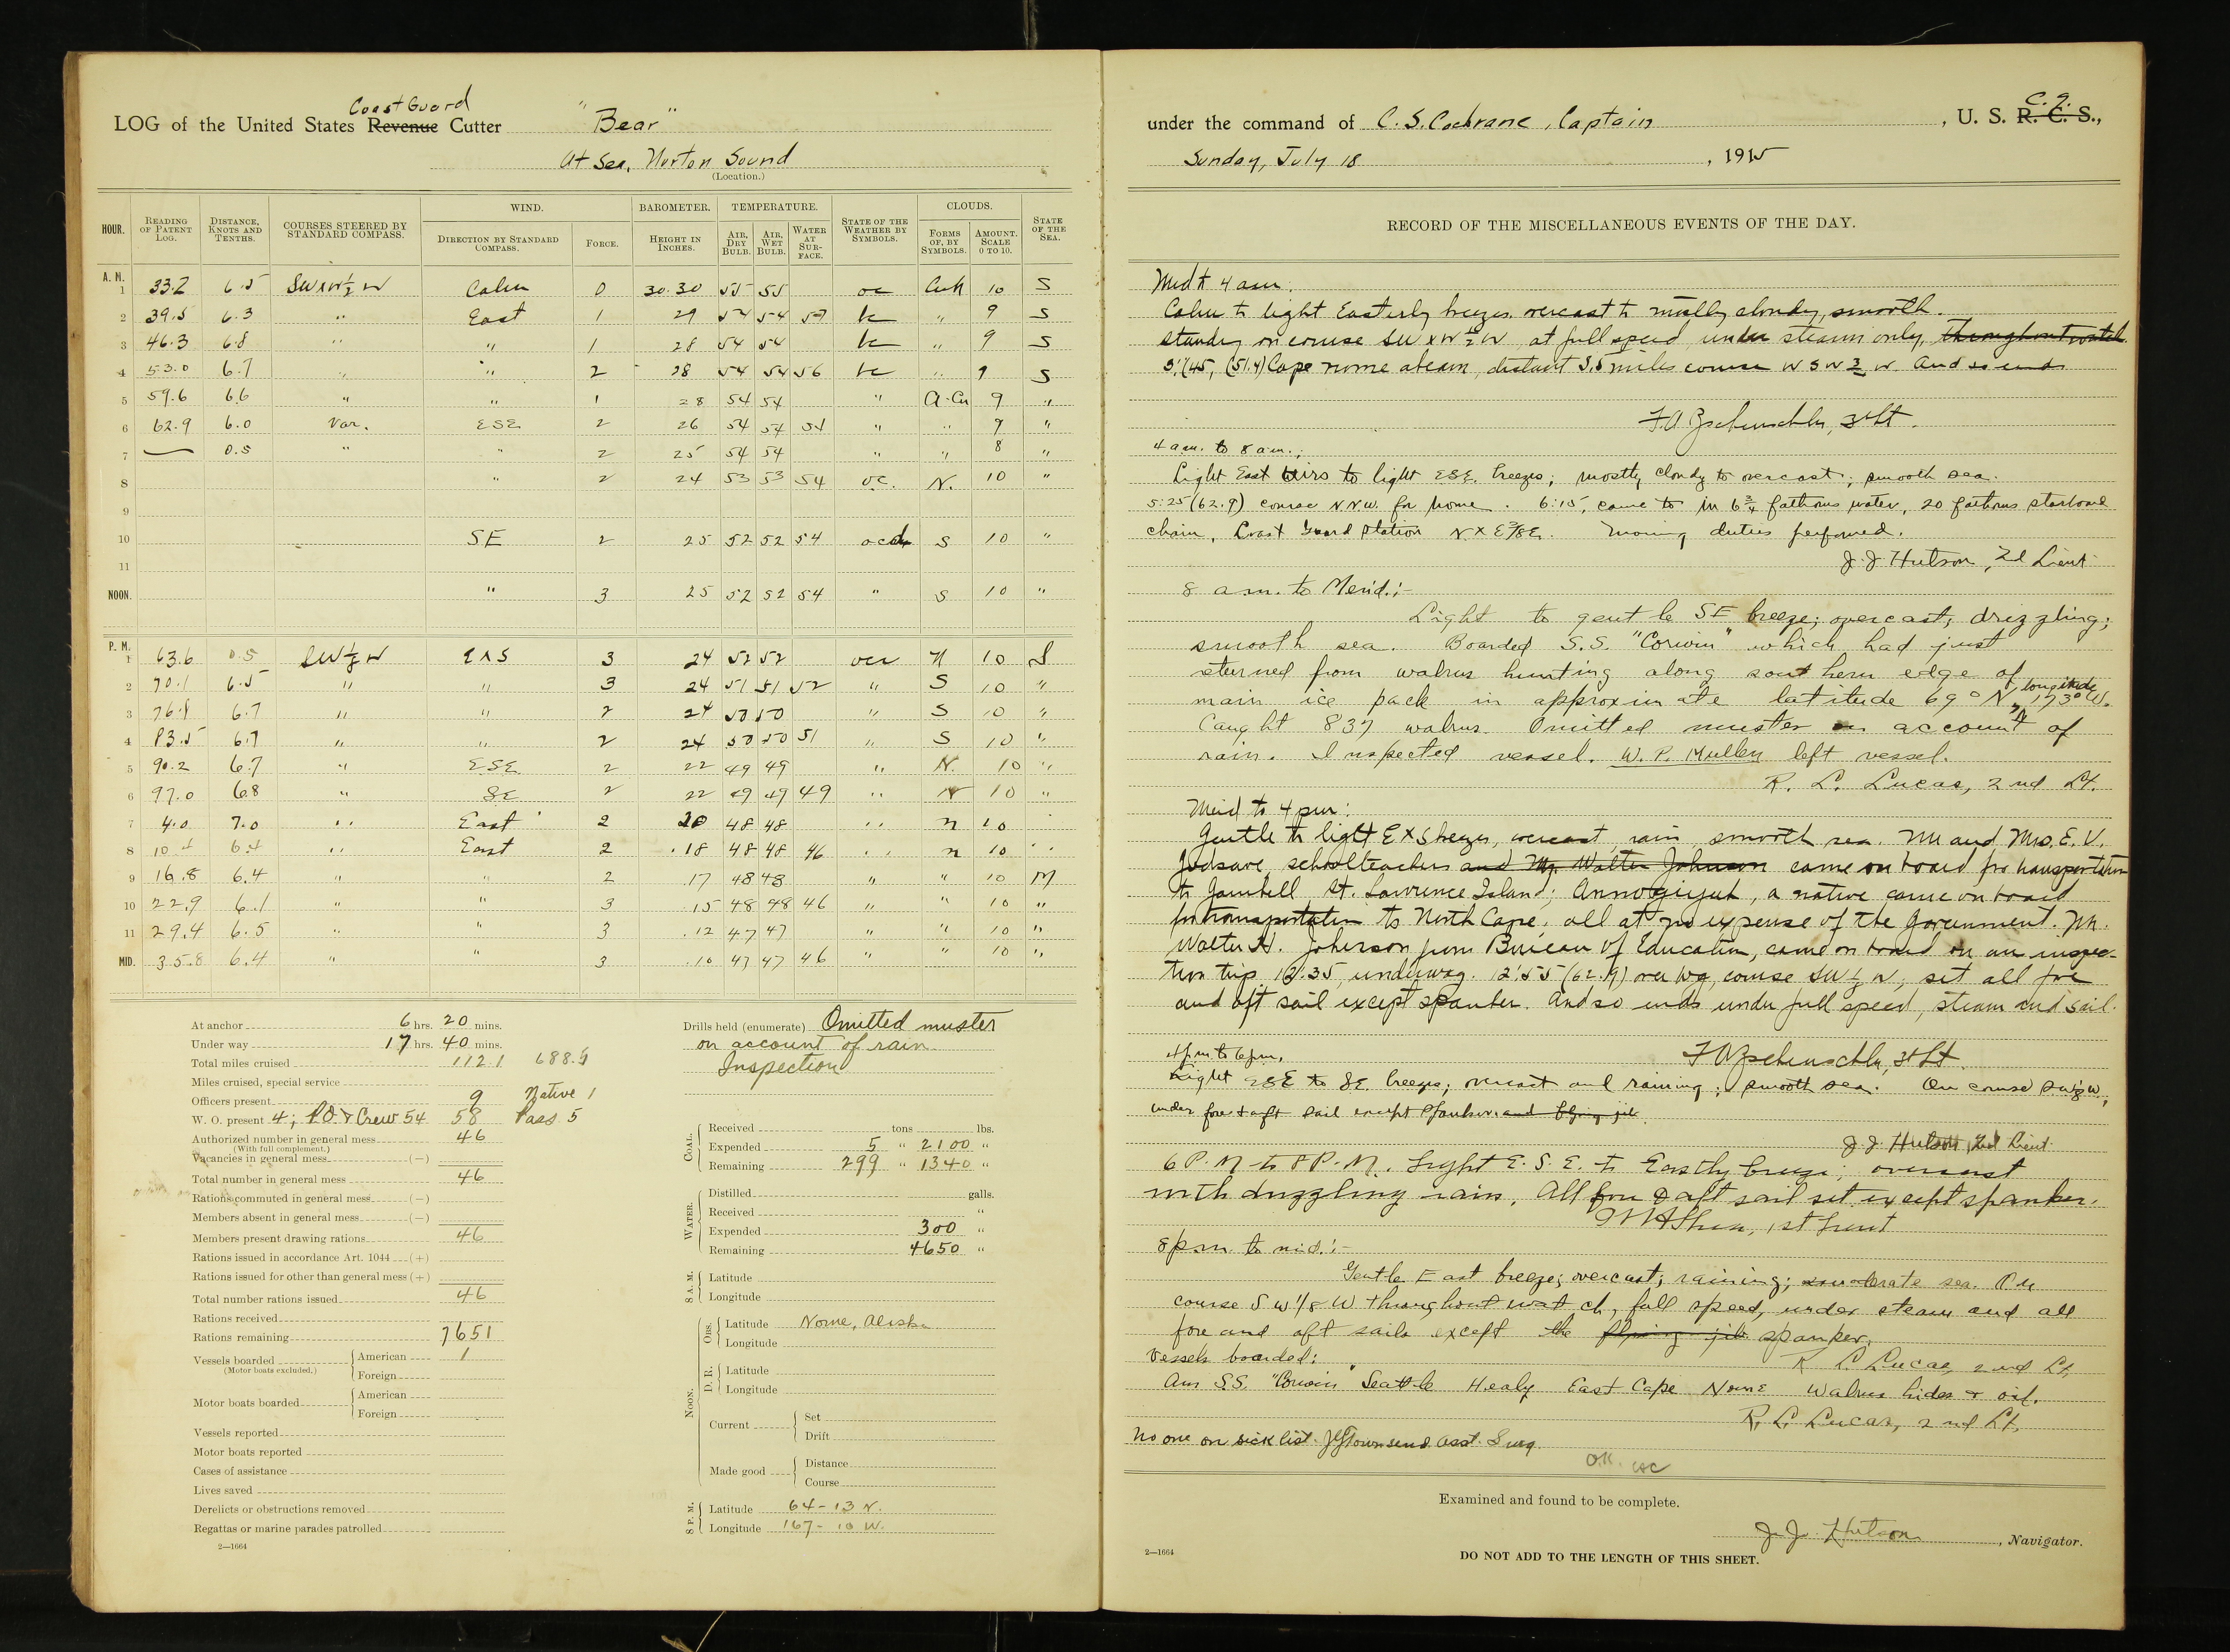 Coast Guard
LOG of the United States Revenue Cutter "Bear"
At Sea, Norton Sound
(Location.)
HOUR. READING OF PATENT LOG. DISTANCE, KNOTS AND TENTHS. COURSES STEERED BY STANDARD COMPASS. WIND. DIRECTION BY STANDARD COMPASS. FORCE. BAROMETER. HEIGHT IN INCHES. TEMPERATURE. AIR, DRY BULB. AIR, WET BULB. WATER AT SURFACE. STATE OF THE WEATHER BY SYMBOLS. CLOUDS. FORMS OF, BY SYMBOLS. AMOUNT. SCALE 0 TO 10. STATE OF THE SEA.
A. M.
1 33.2 6.5 SWxW½W Calm 0 30.30 55 55 oc 10 S
2 39.5 6.3 " East 1 29 54 54 57 bc " 9 S
3 46.3 6.8 " " 1 28 54 54 bc " 9 S
4 53.0 6.7 " " 2 28 54 54 56 bc " 9 S
5 59.6 6.6 " " 1 28 54 54 " A-Cu 9 "
6 62.9 6.0 Var. ESE 2 26 54 54 54 " " 9 "
7 — 0.5 " " 2 25 54 54 " " 8 "
8 " 2 24 53 53 54 oc. N. 10 "
9
10 SE 2 25 52 52 54 ocd S 10 "
11
NOON. " 3 25 52 52 54 " S 10 "
P. M.
1 63.6 0.5 SW½W ExS 3 24 52 52 ocr N 10 S
2 70.1 6.5 " " 3 24 51 51 52 " S 10 "
3 76.8 6.7 " " 2 24 50 50 " S 10 "
4 83.5 6.7 " " 2 24 50 50 51 " S 10 "
5 90.2 6.7 " ESE 2 22 49 49 " N. 10 "
6 97.0 6.8 " SE 2 22 49 49 49 " N 10 "
7 4.0 7.0 " East 2 20 48 48 " n 10 "
8 10.4 6.4 " East 2 .18 48 48 46 " n 10 "
9 16.8 6.4 " " 2 .17 48 48 " " 10 M
10 22.9 6.1 " " 3 .15 48 48 46 " " 10 "
11 29.4 6.5 " " 3 .12 47 47 " " 10 "
MID. 35.8 6.4 " " 3 .10 47 47 46 " " 10 "
At anchor 6 hrs. 20 mins.
Under way 17 hrs. 40 mins.
Total miles cruised 112.1 688.9
Miles cruised, special service
Officers present 9 Native 1
W. O. present 4; P.O. & Crew 54 58 Pass 5
Authorized number in general mess 46
(With full complement.)
Vacancies in general mess (—)
Total number in general mess 46
Rations commuted in general mess (—)
Members absent in general mess (—)
Members present drawing rations 46
Rations issued in accordance Art. 1044 (+)
Rations issued for other than general mess (+)
Total number rations issued 46
Rations received
Rations remaining 7651
Vessels boarded American 1
(Motor boats excluded.) Foreign
Motor boats boarded American
Foreign
Vessels reported
Motor boats reported
Cases of assistance
Lives saved
Derelicts or obstructions removed
Regattas or marine parades patrolled
2—1664
Drills held (enumerate) Omitted muster
on account of rain.
Inspection
COAL.
Received tons lbs.
Expended 5 " 2100 "
Remaining 299 " 1340 "
WATER.
Distilled galls.
Received "
Expended 300 "
Remaining 4650 "
8 A. M.
Latitude
Longitude
NOON.
Obs. Latitude Nome, Alaska
Longitude
D. R. Latitude
Longitude
Current Set
Drift
Made good Distance
Course
8 P. M.
Latitude 64-13 N.
Longitude 167-10 W.
C. G.
under the command of C. S. Cochrane, Captain, U. S. R. C. S.,
Sunday, July 18, 1915
RECORD OF THE MISCELLANEOUS EVENTS OF THE DAY.
Mid to 4 am.
Calm to light Easterly breezes, overcast to mostly cloudy, smooth.
Standing on course SWxW½W at full speed under steam only, throughout watch.
3:45, (51.4) Cape Nome abeam, distant 3.5 miles course WSW¾W. And so ends
3d Lt.
4 am. to 8 am.;
Light East airs to light ESE. breezes; mostly cloudy to overcast; smooth sea.
5:25 (62.9) course NNW. for Nome. 6:15, came to in 6¾ fathoms water, 20 fathoms starboard
chain, Coast Guard Station NxE⅞E. Morning duties performed.
J. J. Hutson, 2d Lieut.
8 am. to Merid.:-
Light to gentle SE breeze; overcast; drizzling;
smooth sea. Boarded S.S. "Corwin" which had just
returned from walrus hunting along southern edge of
main ice pack in approximate latitude 69° N, longitude 173° W.
Caught 837 walrus. Omitted muster on account of
rain. Inspected vessel. W. P. Mullen left vessel.
R. L. Lucas, 2nd Lt.
Merid to 4 pm:
Gentle to light ExS breezes, overcast, rain, smooth sea. Mr and Mrs. E. V.
schoolteachers and Mr. Walter Johnson came on board for transportation
to Gambell St. Lawrence Island; a native came on board
for transportation to North Cape; all at no expense of the Government. Mr.
Walter H. Johnson from Bureau of Education, came on board on an inspec-
tion trip. 12:35, underway. 12:55 (62.9) over log, course SW½W, set all fore
and aft sail except spanker. And so ends under full speed, steam and sail.
3d Lt.
4 pm to 6 pm,
Light ESE to SE. breezes; overcast and raining; smooth sea. On course SW⅛W,
under fore & aft sail except spanker. and flying jib.
J. J. Hutson, 2nd Lieut.
6 P.M to 8 P.M. Light E.S.E. to Eastly breeze; overcast
with drizzling rain. All fore & aft sail set except spanker.
1st Lieut
8 pm. to mid.:-
Gentle East breeze; overcast; raining; moderate sea. On
course SW⅛W throughout watch, full speed, under steam and all
fore and aft sails except the flying jib spanker.
R. L. Lucas, 2nd Lt.
Vessels boarded:
Am S.S. "Corwin" Seattle Healy East Cape Nome Walrus hides & oil.
R. L. Lucas, 2nd Lt,
No one on sick list. J G Townsend. Asst. Surg.
O.K. CSC
Examined and found to be complete.
J. J. Hutson, Navigator.
2—1664
DO NOT ADD TO THE LENGTH OF THIS SHEET.